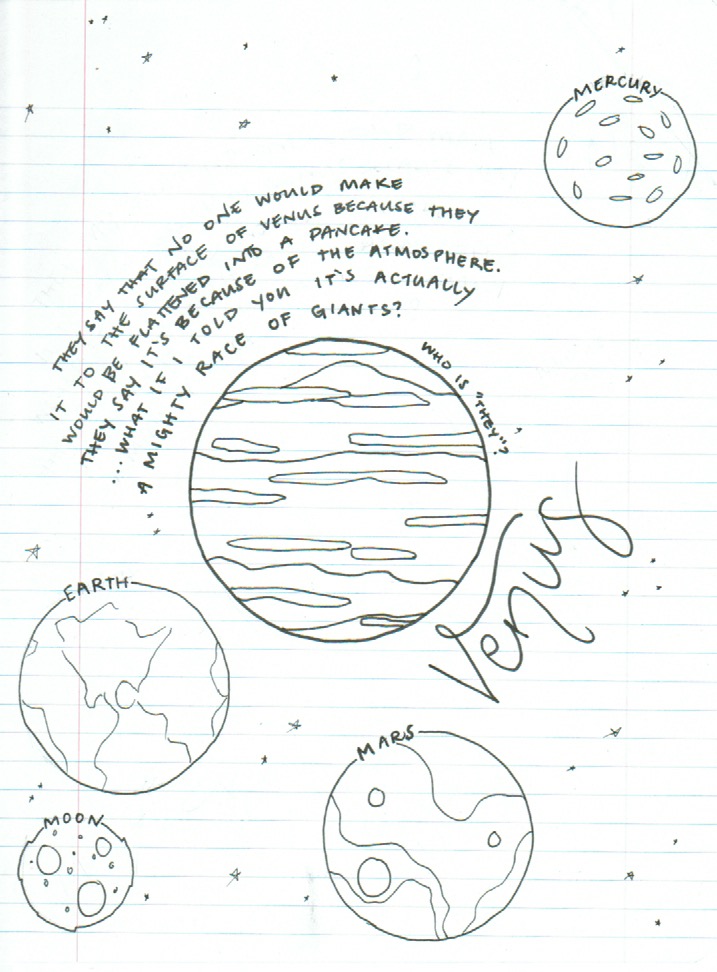 MERCURY
THEY SAY THAT NO ONE WOULD MAKE
IT TO THE SURFACE OF VENUS BECAUSE THEY
WOULD BE FLATTENED INTO A PANCAKE.
THEY SAY IT'S BECAUSE OF THE ATMOSPHERE.
...WHAT IF I TOLD YOU IT'S ACTUALLY
A MIGHTY RACE OF GIANTS?
WHO IS "THEY"?
Venus
EARTH
MARS
MOON